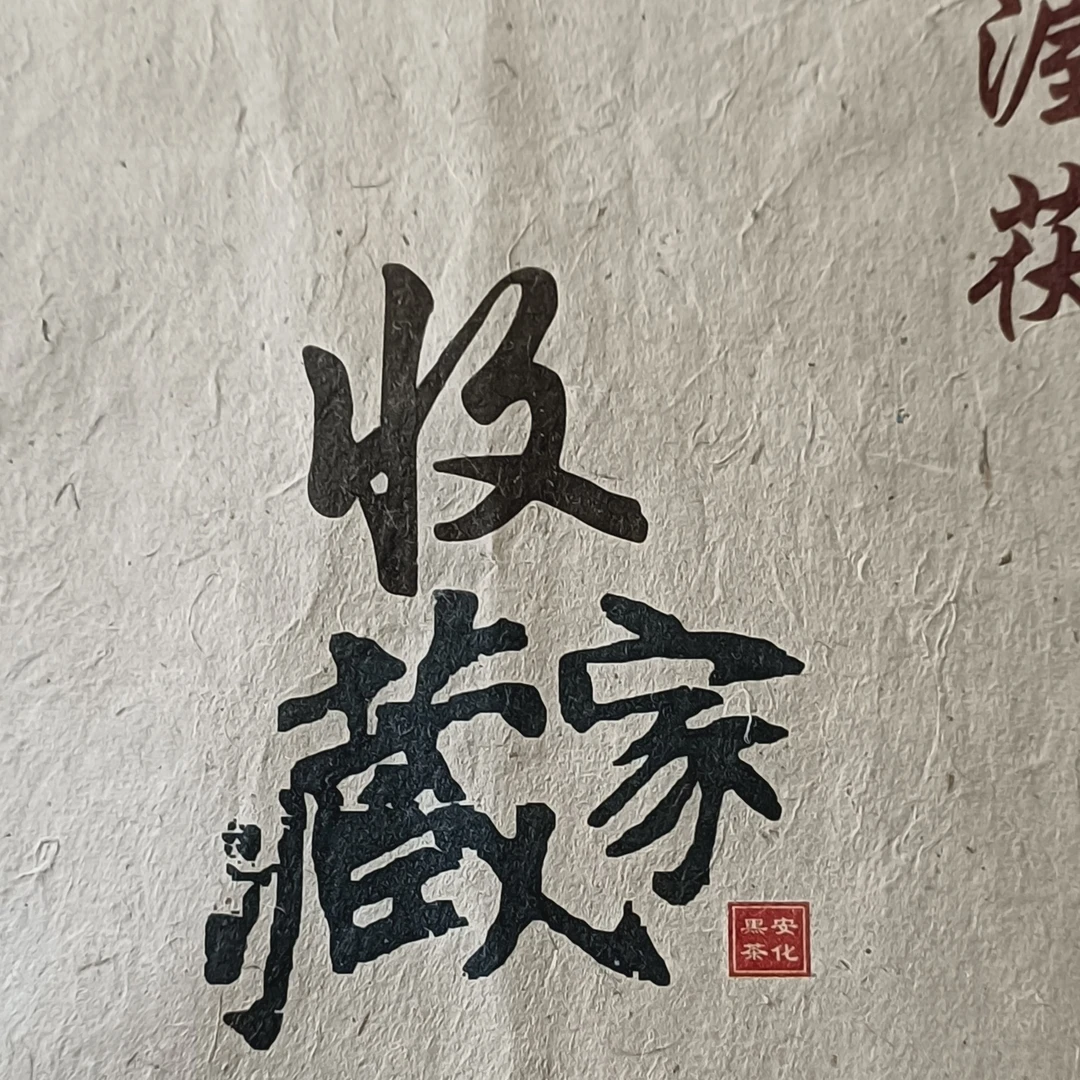 渥
茯
收
藏家
安化
黑茶